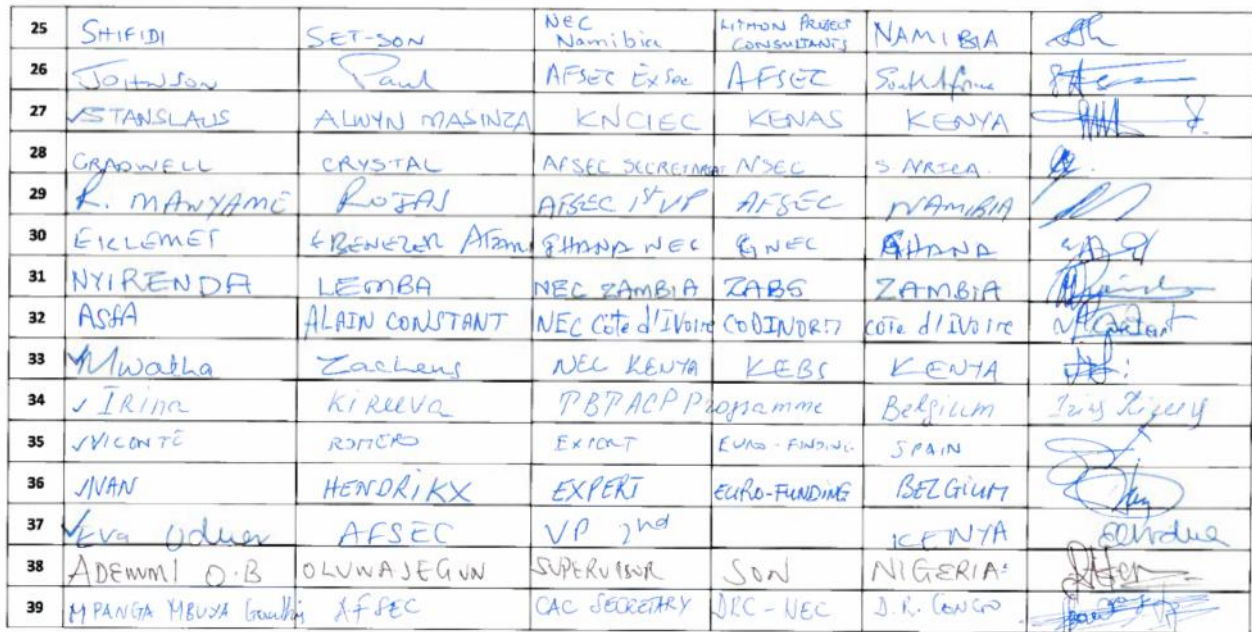 25 SHIFIDI SET-SON NEC Namibia LITHON PROJECT CONSULTANTS NAMIBIA
26 JOHNSON Paul AFSEC ExSec AFSEC South Africa
27 STANSLAUS ALWYN MASINZA KNCIEC KENAS KENYA
28 GRADWELL CRYSTAL AFSEC SECRETARIAT S AFRICA.
29 R. MANYAME ROJAS AFSEC 1st VP AFSEC NAMIBIA
30 EBENEZER GHANA NEC GNEC GHANA
31 NYIRENDA LEMBA NEC ZAMBIA ZABS ZAMBIA
32 ASSA ALAIN CONSTANT NEC Côte d'IVoire CODINORM côte d'IVoire
33 Mwatha Zacheus NEC KENYA KEBS KENYA
34 IRina KiReeva TBT ACP Programme Belgium
35 VICENTE ROMERO EXPERT EURO-FUNDING SPAIN
36 IVAN HENDRiKX EXPERT EURO-FUNDING BELGIUM
37 Eva Oduor AFSEC VP 2nd KENYA
38 ADEWUMI O.B OLUWASEGUN SUPERVISOR SON NIGERIA
39 MPANGA MBUYA AFSEC CAC SECRETARY DRC-NEC D.R. CONGO